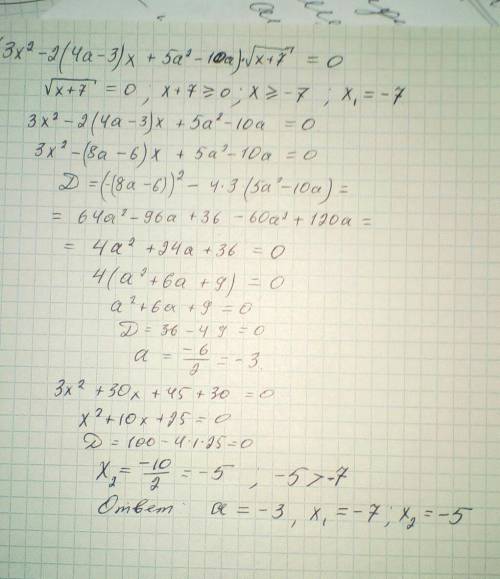 (3x² - 2(4a-3)x + 5a² - 10a)·√(x+7) = 0
√(x+7) = 0 ; x+7 ≥ 0 ; x ≥ -7 ; x₁ = -7
3x² - 2(4a-3)x + 5a² - 10a = 0
3x² - (8a-6)x + 5a² - 10a = 0
D = (-(8a-6))² - 4·3(5a² - 10a) =
= 64a² - 96a + 36 - 60a² + 120a =
= 4a² + 24a + 36 = 0
4(a² + 6a + 9) = 0
a² + 6a + 9 = 0
D = 36 - 4·9 = 0
a = -6/2 = -3.
3x² + 30x + 45 + 30 = 0
x² + 10x + 25 = 0
D = 100 - 4·1·25 = 0
x₂ = -10/2 = -5 ; -5 > -7
Ответ: a = -3, x₁ = -7; x₂ = -5